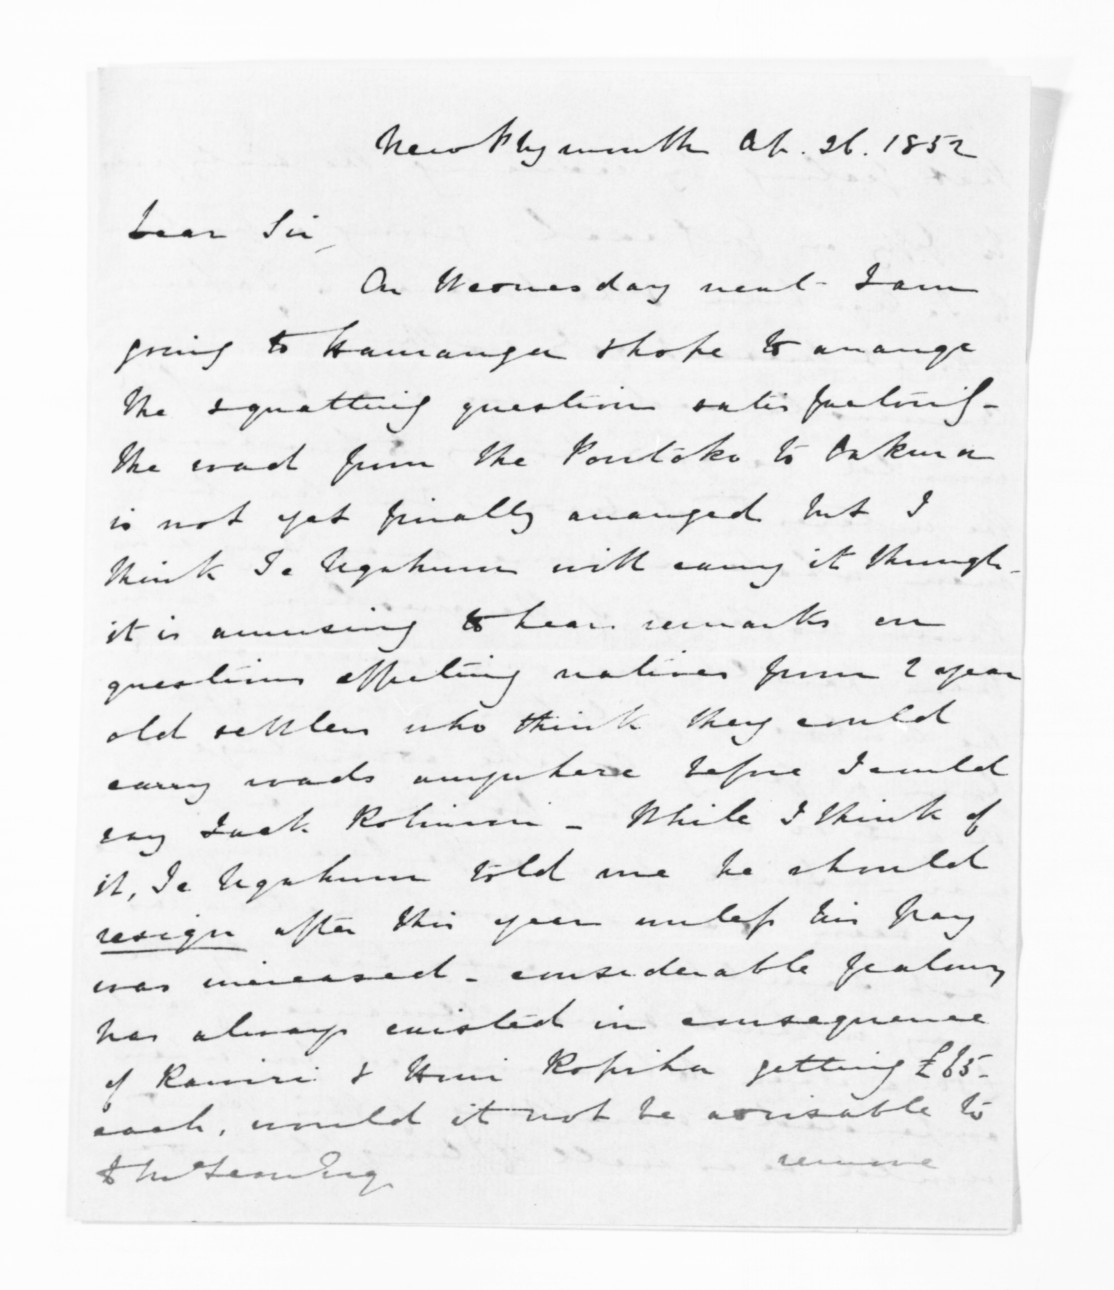 New Plymouth Ap. 26. 1852
Dear Sir,
On Wednesday next I am
going to Hauranga & hope to arrange
the squatting question satisfactorily -
the road from the Poutoko to Oakura
is not yet finally arranged but I
think Te Ngahuru will carry it through -
it is amusing to hear remarks on
questions affecting natives from 2 year
old settlers who think they could
carry roads anywhere before I could
say Jack Robinson - While I think of
it, Te Ngahuru told me he should
resign after this year unless his pay
was increased - considerable jealousy
has always existed in consequence
of Rawiri & Honi Ropiha getting £65.
each, would it not be advisable to
remove
D McLean Esq.